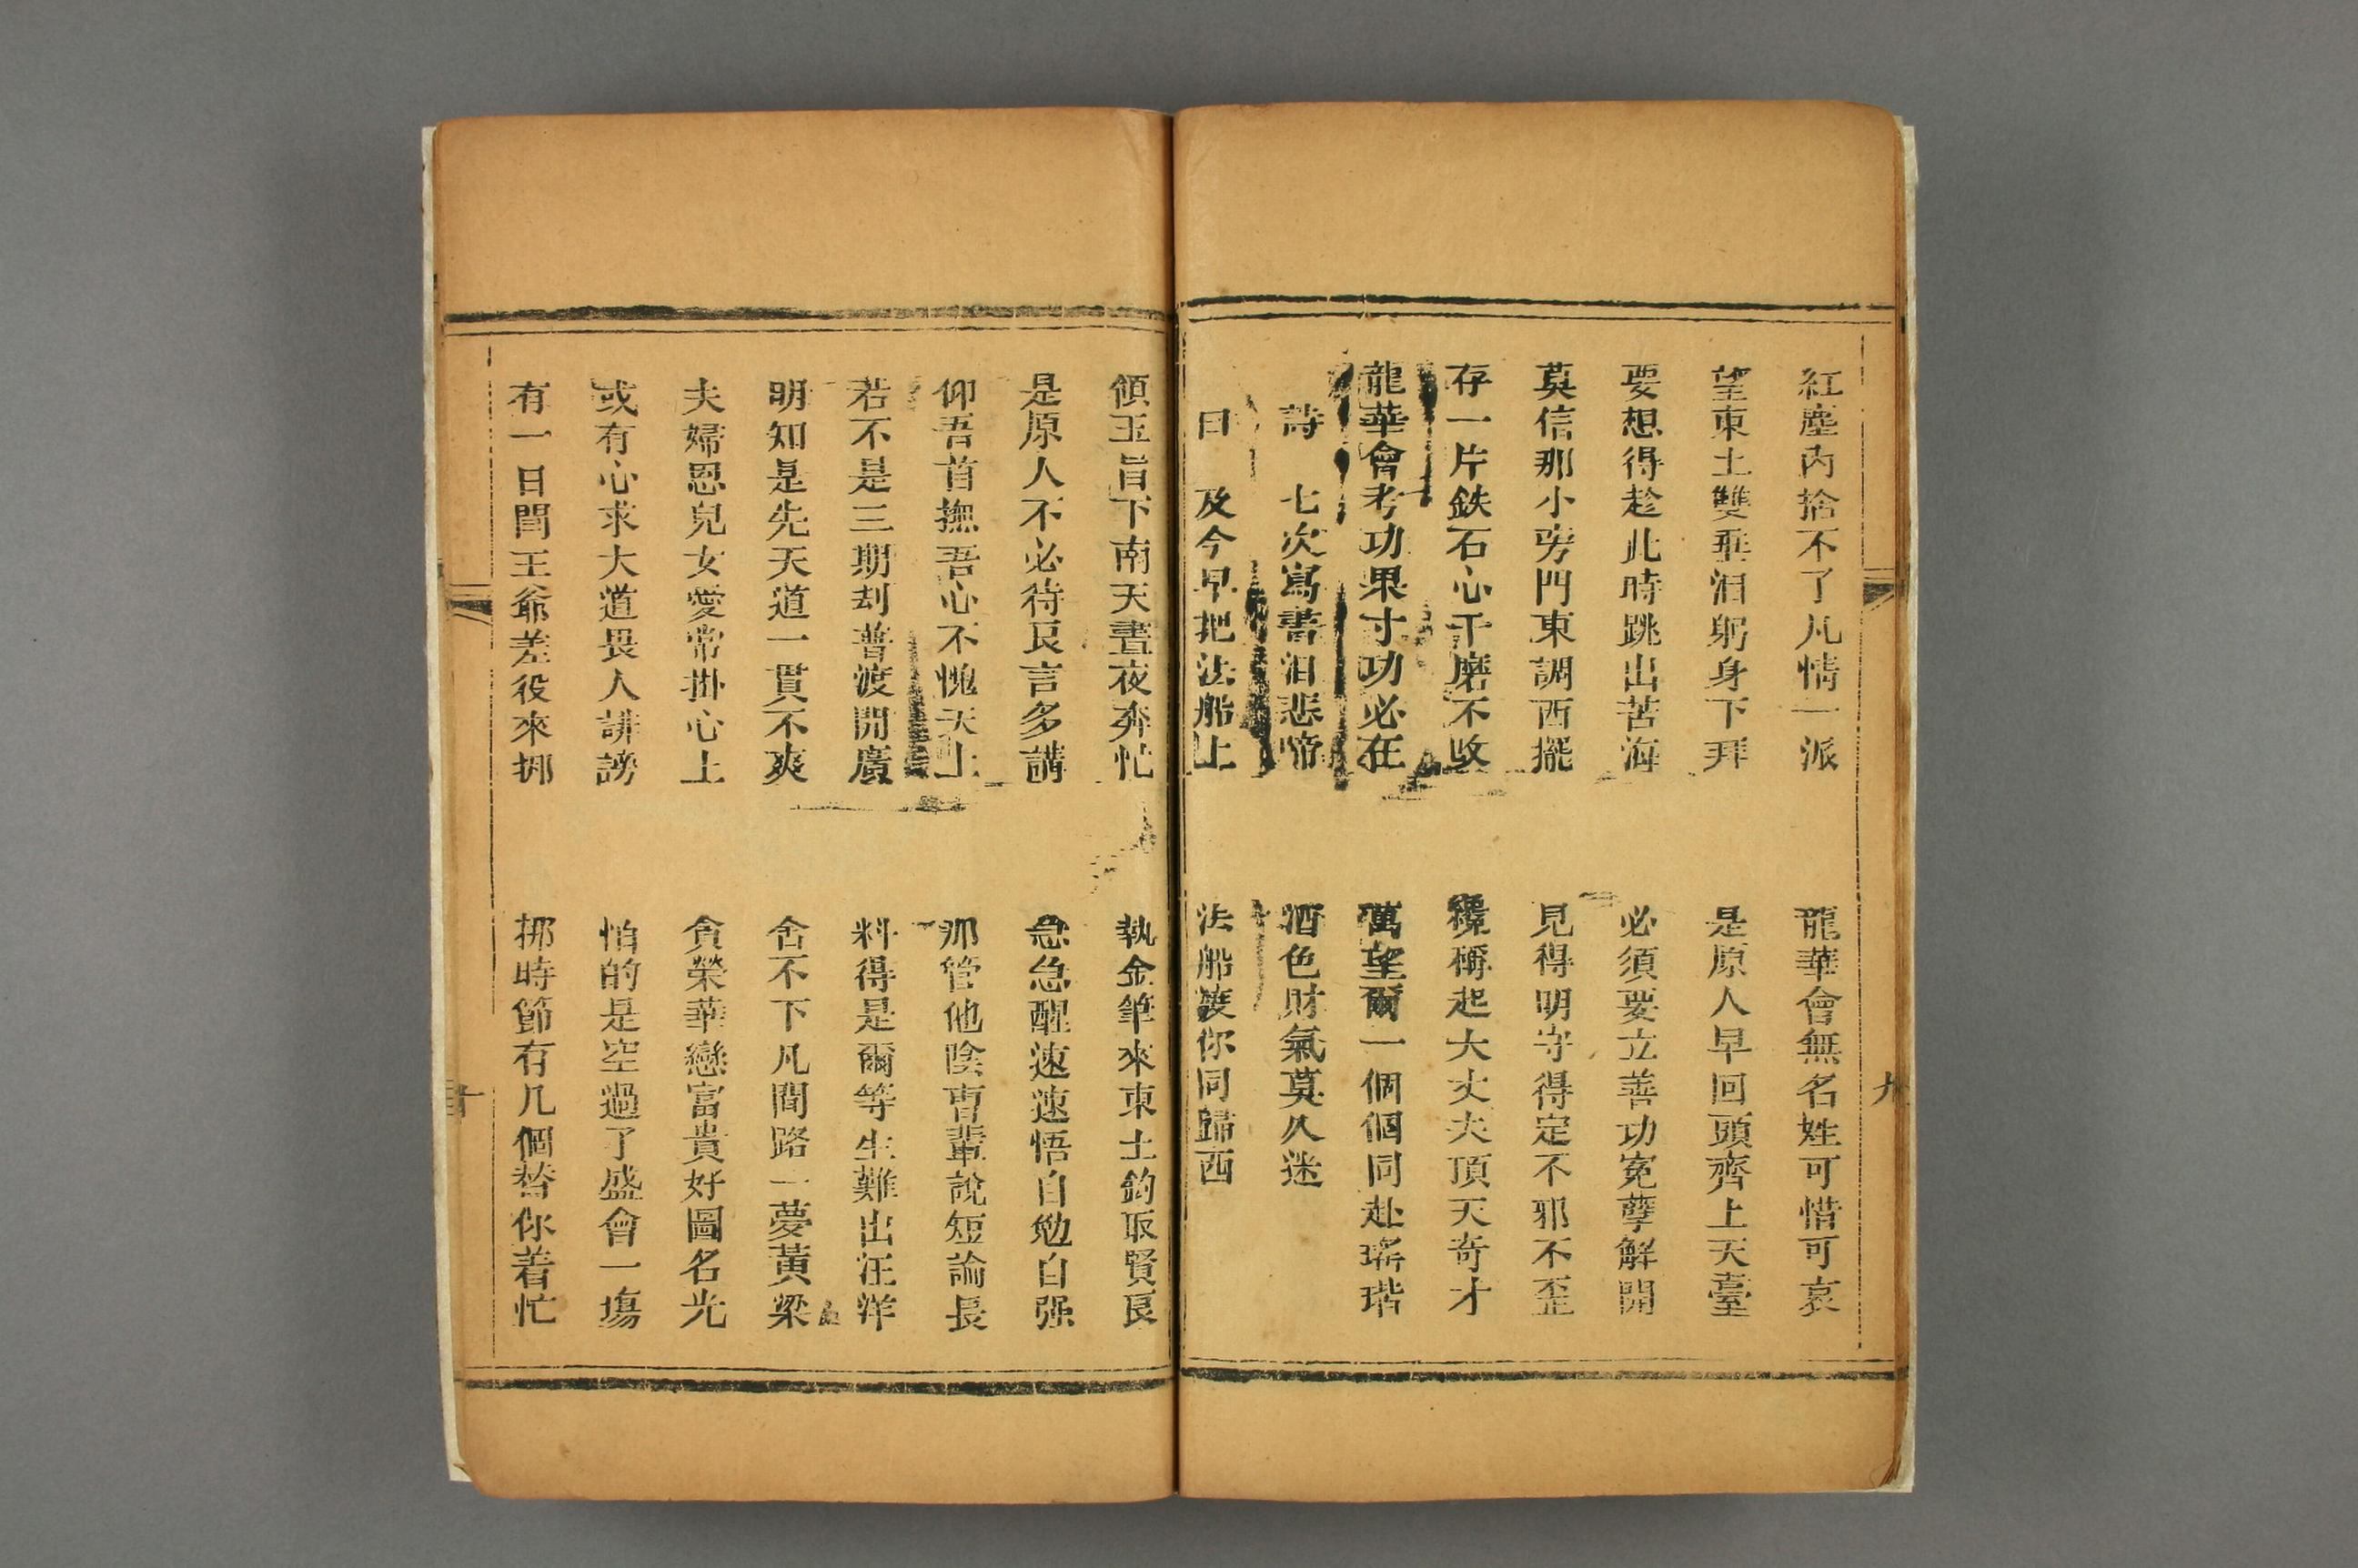 紅塵內捨不了凡情一派　龍華會無名姓可惜可哀
望東土雙垂泪躬身下拜　是原人早回頭齊上天臺
要想得趁此時跳出苦海　必須要立善功寃孽解開
莫信那小旁門東調西擺　見得明守得定不邪不歪
存一片鉄石心千磨不改　纔稱起大丈夫頂天奇才
龍華會考功果寸功必在　萬望爾一個個同赴瑤堦
詩　七次寫書泪悲啼　酒色財氣莫久迷
曰　及今早把法船上　法船渡你同歸西
九
領玉旨下南天晝夜奔忙　執金筆來東土鈞取賢良
是原人不必待良言多講　急急醒速速悟自勉自强
仰吾首撫吾心不愧天上　那管他陰曹輩說短論長
若不是三期刦普渡開廣　料得是爾等生難出汪洋
明知是先天道一貫不爽　舍不下凡間路一夢黃梁
夫婦恩兒女愛常掛心上　貪榮華戀富貴好圖名光
或有心求大道畏人誹謗　怕的是空過了盛會一塲
有一日閻王爺差役來挷　挷時節有几個替你着忙